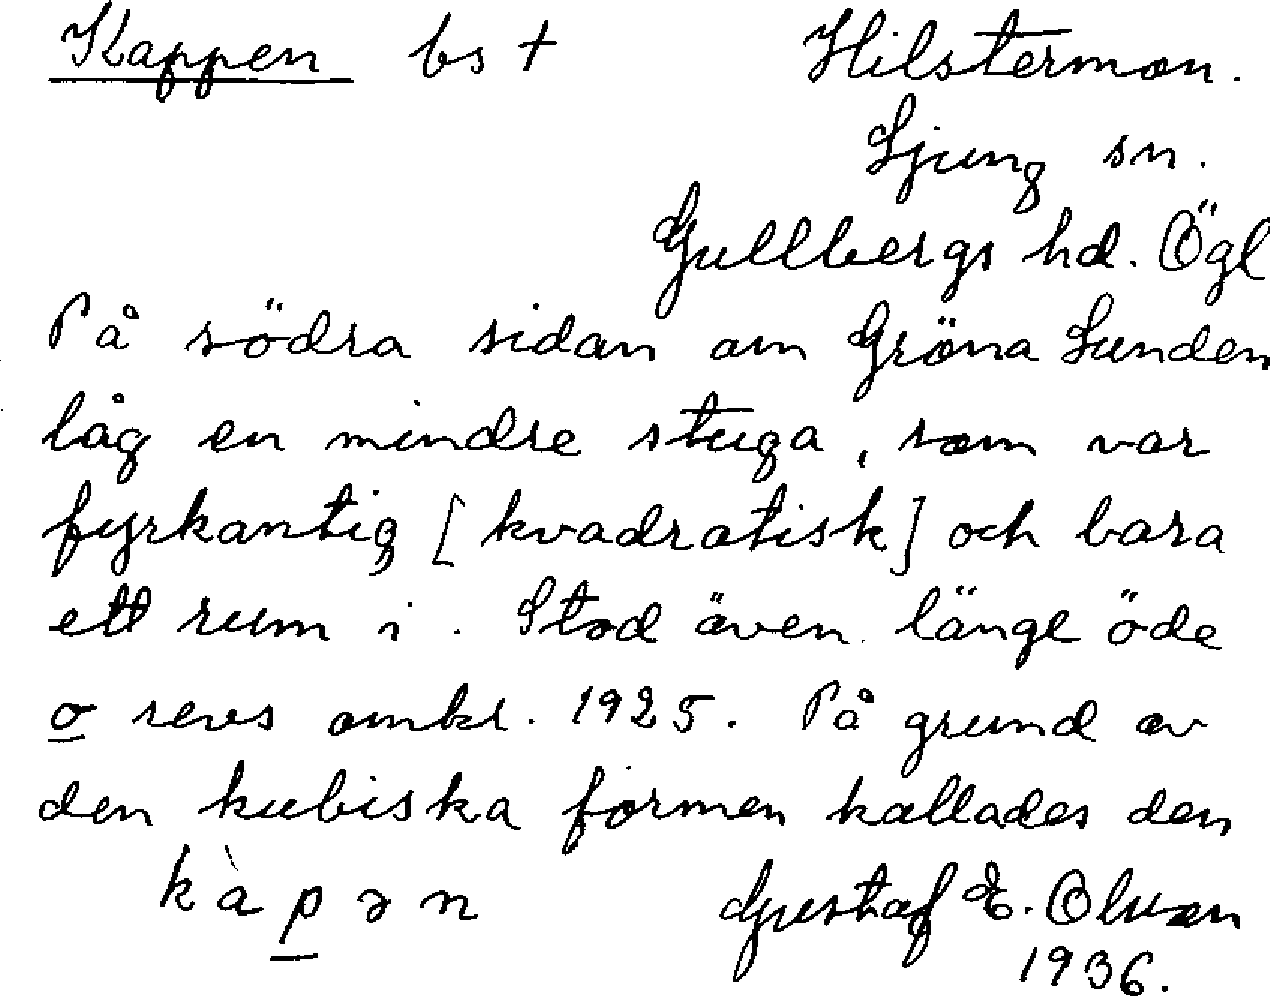 Kappen bs † Hilstermon.
Ljung sn.
Gullbergs hd. Ögl
På södra sidan om Gröna Lunden
låg en mindre stuga, som var
fyrkantig [kvadratisk] och bara
ett rum i. Stod även längl öde
o revs omkr. 1925. På grund av
den kubiska formen kallades den
kàpən Gustaf E. Olson
1936.